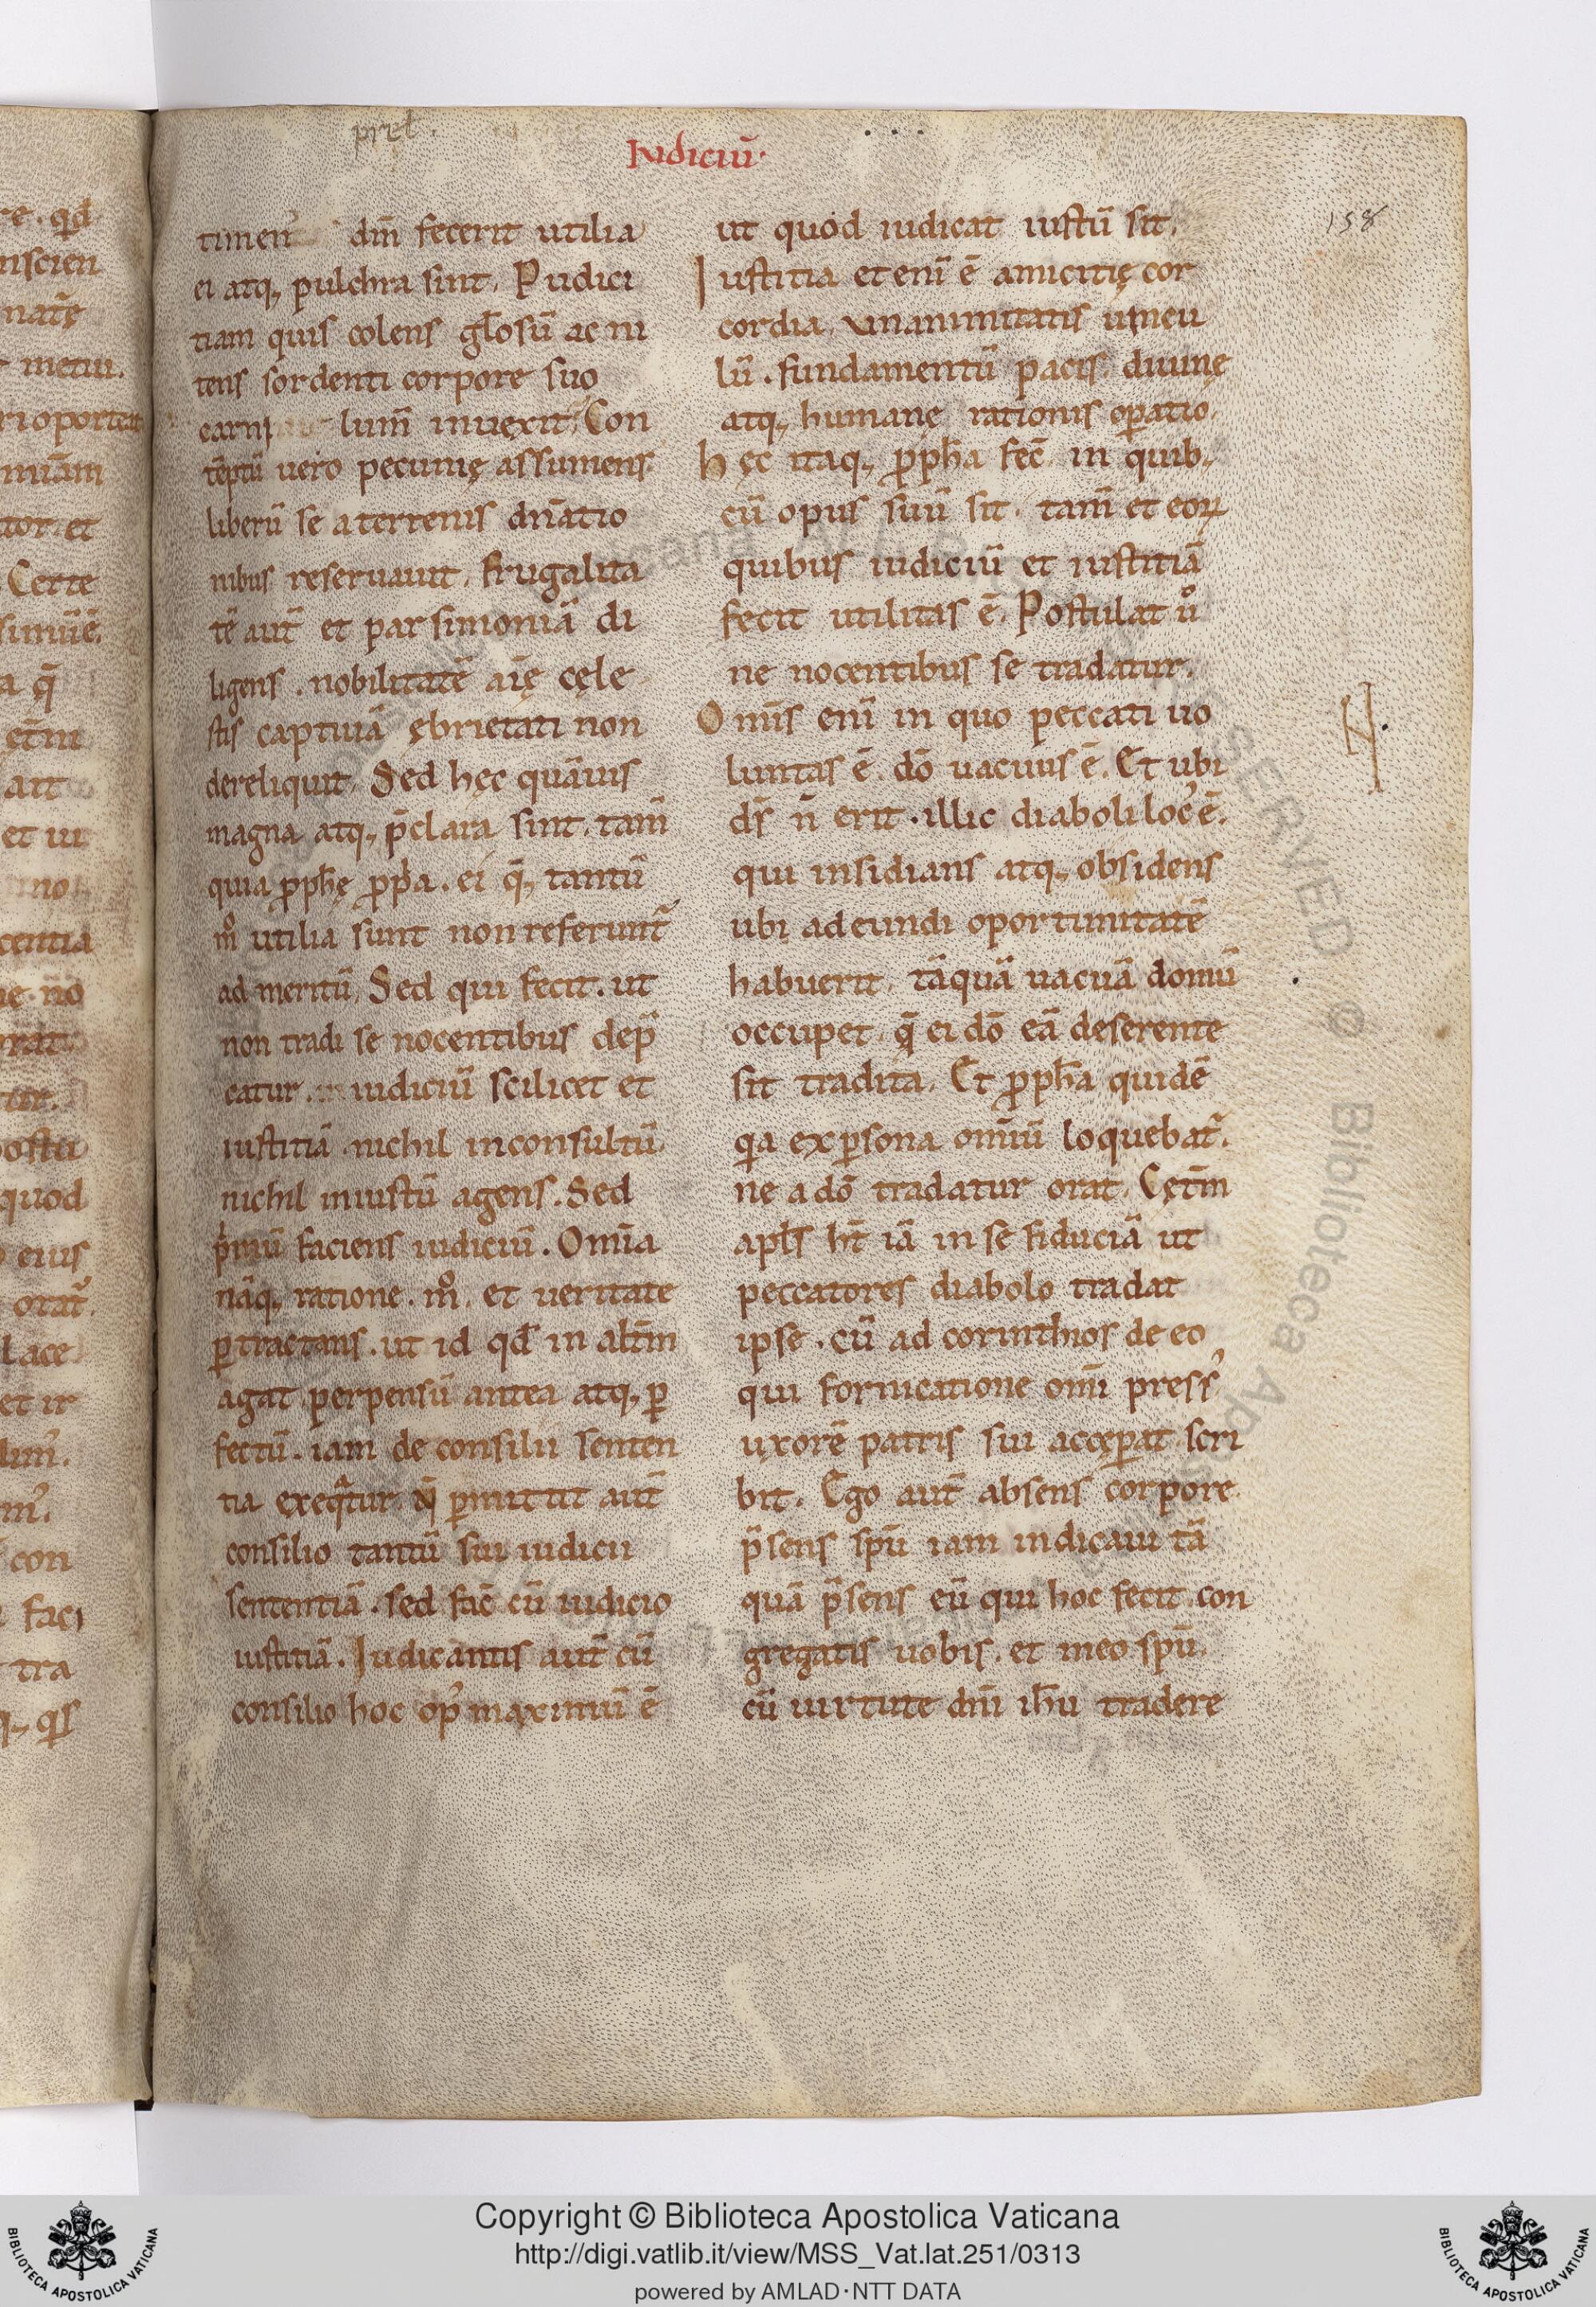 pret.
Iudiciū·
158
timen᾽ dm̄ fecerit utilia
ei atq; pulchra sint. Pudici
tiam quis colens gl̄osū ac ni
tens sordenti corpore suo
carni lum̄ inuexit. Con
tēptū uero pecunię assumens
liberū se a terrenis dn̄atio
nibus reseruauit. frugalita
tē aut̄ et parsimoniā di
ligens. nobilitatē aīę cęle
stis captiuā ębrietati non
dereliquit. Sed hęc quāuis
magna atq; p̄clara sint. tam̄
quia ꝓph̄ę ꝓp̄a. ei q̄; tantū
m̊ utilia sunt non referunt᷑
ad meritū. Sed qui fecit. ut
non tradi se nocentibus dep̄
catur. iudiciū scilicet et
iustitiā nichil inconsultū
nichil iniustū agens. Sed
pⁱmū faciens iudiciū. Om̄ia
nāq; ratione. m̊. et ueritate
ꝑtractans. ut id qd̄ in alt̄m
agat perpensū antea atq; ꝑ
fectū. iam de consilii senten
tia exeq̄tur. N̄ ꝑmittit aut̄
consilio tantū sui iudicii
sententiā. sed fac̄ cū iudicio
iustitiā. Iudicantis aut̄ cū
consilio hoc op᾽ maximū ē
ut quod iudicat iustū sit.
Iustitia et enī ē amicitię cor
cordia. unanimitatis uincu
lū. fundamentū pacis diuinę
atq; humanę rationis oꝑatio.
Hęc itaq; ꝓph̄a fec̄. in quib;
cū opus suū sit. tam̄ et eoꝝ
quibus iudiciū et iustitiā
fecit utilitas ē. Postulat ů
ne nocentibus se tradatur.
Omīs enī in quo peccati uo
luntas ē. dō uacuus ē. Et ubi
ds̄ n̄ erit. illic diaboli loc᾽ ē.
qui insidians atq; obsidens
ubi adeundi oportunitatē
habuerit. tāquā uacuā domū
occupet. q̄ ei dō eā deserente
sit tradita. Et ꝓph̄a quidē
qⁱa ex ꝑsona om̄iū loquebat᷑.
ne a dō tradatur orat. Cęt̄m
apls̄ ht̄ iā in se fiduciā ut
peccatores diabolo tradat
ipse. cū ad corinthios de eo
qui fornicatione om̄i press᾽
uxorē patris sui accęꝑat. scri
bit. Ego aut̄ absens corpore
p̄sens spū iam iudicaui tā
quā p̄sens eū qui hoc fecit. con
gregatis uobis. et meo spū.
cū uirtute dn̄i ih̄u tradere
Copyright © Biblioteca Apostolica Vaticana
http://digi.vatlib.it/view/MSS_Vat.lat.251/0313
powered by AMLAD·NTT DATA